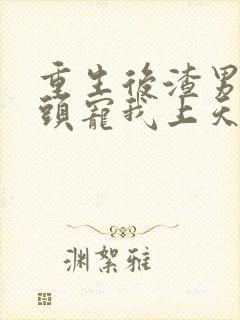 重生後渣男
頭寵我上天
渊絮雅